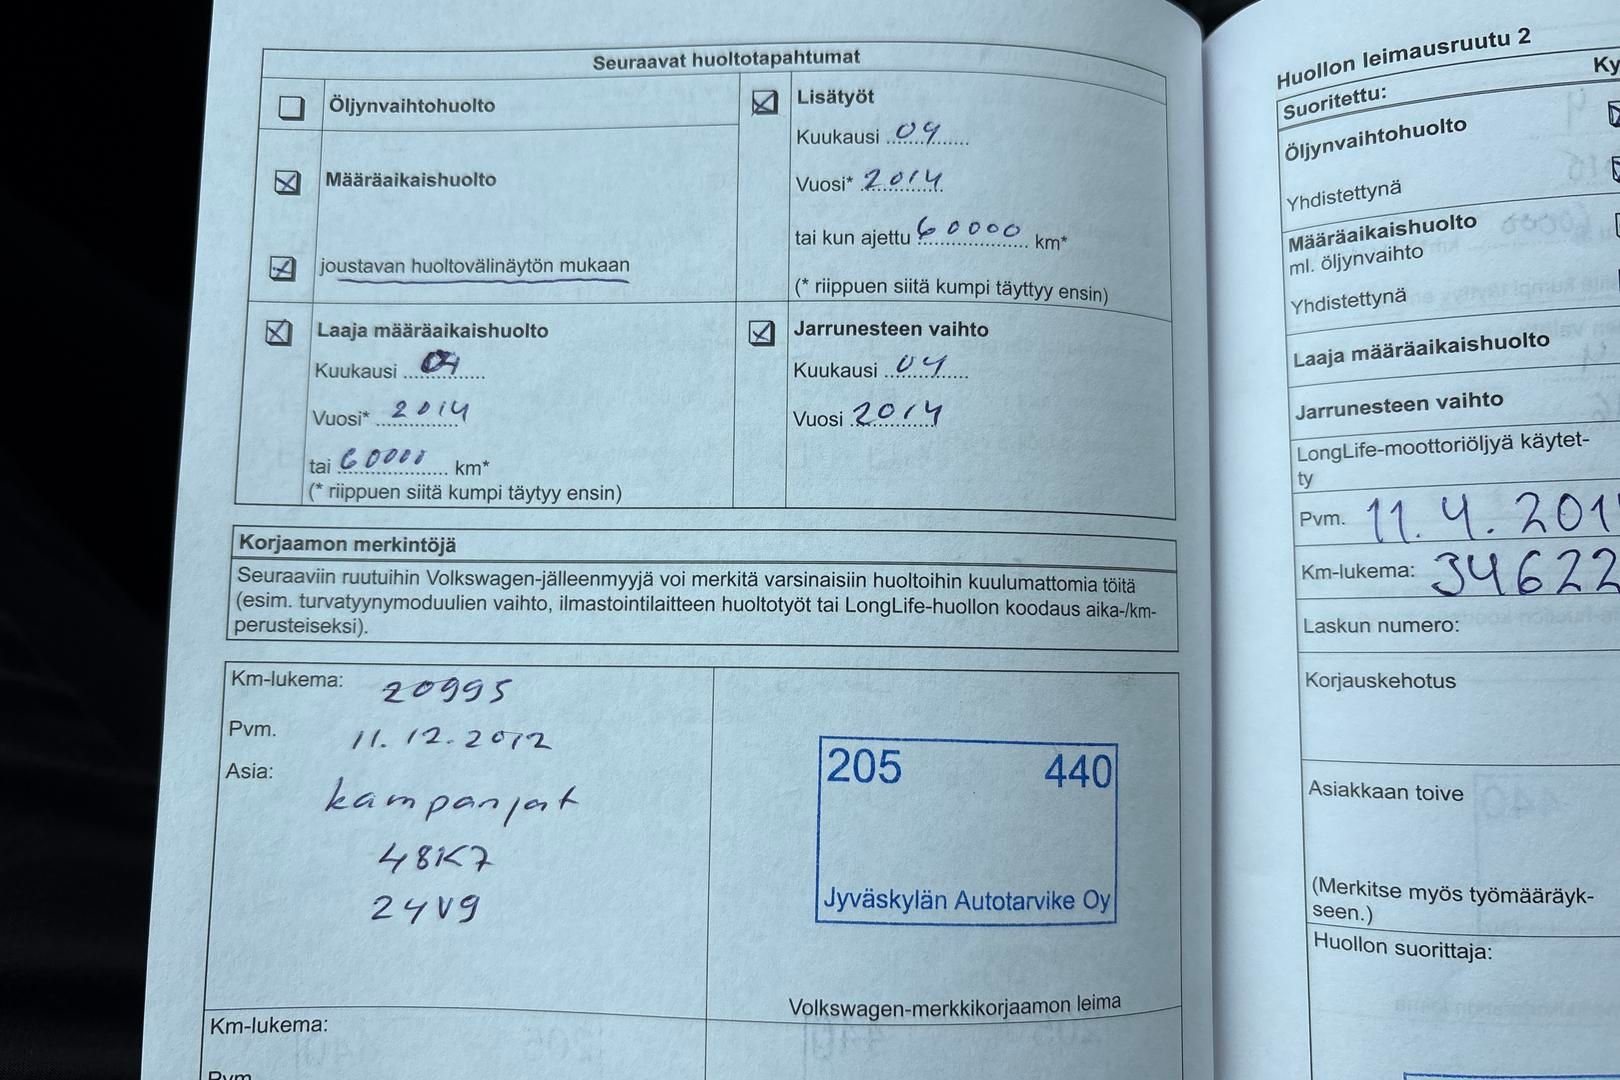 Seuraavat huoltotapahtumat
Öljynvaihtohuolto
Määräaikaishuolto
joustavan huoltovälinäytön mukaan
Lisätyöt
Kuukausi 09
Vuosi* 2014
tai kun ajettu 60000 km*
(* riippuen siitä kumpi täyttyy ensin)
Laaja määräaikaishuolto
Kuukausi 04
Vuosi* 2014
tai 60000 km*
(* riippuen siitä kumpi täytyy ensin)
Jarrunesteen vaihto
Kuukausi 04
Vuosi 2014
Korjaamon merkintöjä
Seuraaviin ruutuihin Volkswagen-jälleenmyyjä voi merkitä varsinaisiin huoltoihin kuulumattomia töitä
(esim. turvatyynymoduulien vaihto, ilmastointilaitteen huoltotyöt tai LongLife-huollon koodaus aika-/km-
perusteiseksi).
Km-lukema: 20995
Pvm. 11.12.2012
Asia:
kampanjat
48K7
24V9
205 440
Jyväskylän Autotarvike Oy
Volkswagen-merkkikorjaamon leima
Km-lukema:
Pvm.
Huollon leimausruutu 2
Ky
Suoritettu:
Öljynvaihtohuolto
Yhdistettynä
Määräaikaishuolto
ml. öljynvaihto
Yhdistettynä
Laaja määräaikaishuolto
Jarrunesteen vaihto
LongLife-moottoriöljyä käytet-
ty
Pvm. 11.4.201
Km-lukema: 34622
Laskun numero:
Korjauskehotus
Asiakkaan toive
(Merkitse myös työmääräyk-
seen.)
Huollon suorittaja: